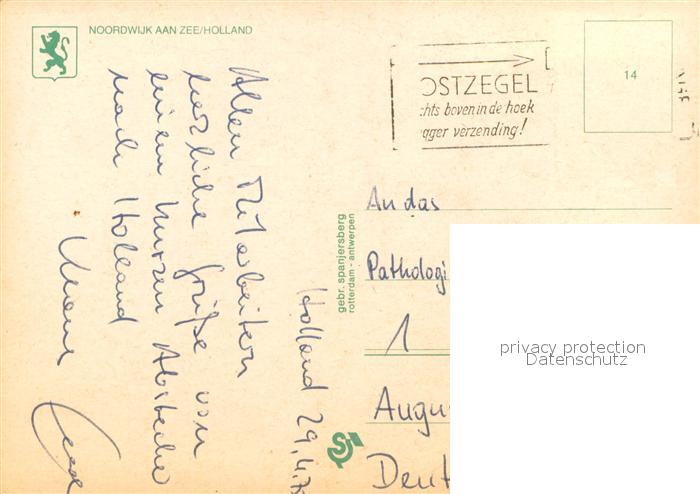 NOORDWIJK AAN ZEE/HOLLAND
Holland 29.4.
Allen Mitarbeitern
herzliche Grüße von
einem kurzen Abstecher
nach Holland
gebr. spanjersberg
rotterdam - antwerpen
OSTZEGEL
chts boven in de hoek
gger verzending!
14
An das
Pathologi
1
Augu
Deut
privacy protection
Datenschutz